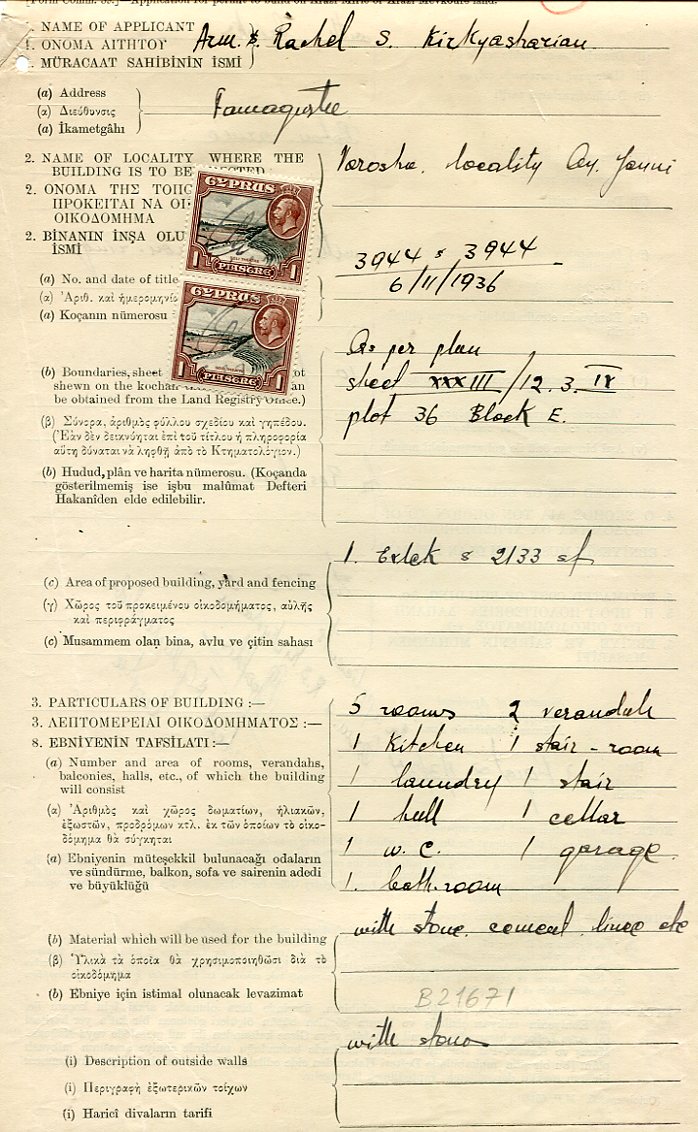 1. NAME OF APPLICANT
1. ΟΝΟΜΑ ΑΙΤΗΤΟΥ
1. MÜRACAAT SAHIBİNİN İSMİ
Arm. & Rachel S. Kirkyasharian
(a) Address
(α) Διεύθυνσις
(a) İkametgâhı
Famagusta
2. NAME OF LOCALITY WHERE THE
BUILDING IS TO BE
2. ΟΝΟΜΑ ΤΗΣ
ΠΡΟΚΕΙΤΑΙ ΝΑ
ΟΙΚΟΔΟΜΗΜΑ
2. BİNANIN İNŞA
İSMİ
Varosha, locality Ay. Yanni
CYPRUS
1 PIASTRE 1
CYPRUS
1 PIASTRE 1
(a) No. and date of title
(α) Ἀριθ. καὶ
(a) Koçanın nümerosu
3944 & 3944
6/11/1936
(b) Boundaries, sheet
shewn on the kochan
be obtained from the Land Registry Office.)
(β) Σύνορα, ἀριθμὸς φύλλου σχεδίου καὶ γηπέδου.
(Ἐὰν δὲν δεικνύηται ἐπὶ τοῦ τίτλου ἡ πληροφορία
αὕτη δύναται νὰ ληφθῇ ἀπὸ τὸ Κτηματολόγιον.)
(b) Hudud, plân ve harita nümerosu. (Koçanda
gösterilmemiş ise işbu malûmat Defteri
Hakanîden elde edilebilir.
As per plan
sheet XXXIII/12.3.IV
plot 36 Block E.
(c) Area of proposed building, yard and fencing
(γ) Χῶρος τοῦ προκειμένου οἰκοδομήματος, αὐλῆς
καὶ περιφράγματος
(c) Musammem olan bina, avlu ve çitin sahası
1. Evlek & 2133 sf
3. PARTICULARS OF BUILDING :—
3. ΛΕΠΤΟΜΕΡΕΙΑΙ ΟΙΚΟΔΟΜΗΜΑΤΟΣ :—
8. EBNIYENIN TAFSİLATI :—
(a) Number and area of rooms, verandahs,
balconies, halls, etc., of which the building
will consist
(α) Ἀριθμὸς καὶ χῶρος δωματίων, ἡλιακῶν,
ἐξωστῶν, προδρόμων κτλ. ἐκ τῶν ὁποίων τὸ οἰκο-
δόμημα θὰ σύγκηται
(a) Ebniyenin müteşekkil bulunacağı odaların
ve sündürme, balkon, sofa ve sairenin adedi
ve büyüklüğü
5 rooms 2 verandah
1 Kitchen 1 stair-room
1 laundry 1 stair
1 hall 1 cellar
1 w.c. 1 garage.
1. bath-room
(b) Material which will be used for the building
(β) Ὑλικὰ τὰ ὁποῖα θὰ χρησιμοποιηθῶσι διὰ τὸ
οἰκοδόμημα
(b) Ebniye için istimal olunacak levazimat
with stone, cement, lime etc
B21671
(i) Description of outside walls
(i) Περιγραφὴ ἐξωτερικῶν τοίχων
(i) Haricî divaların tarifi
with stones